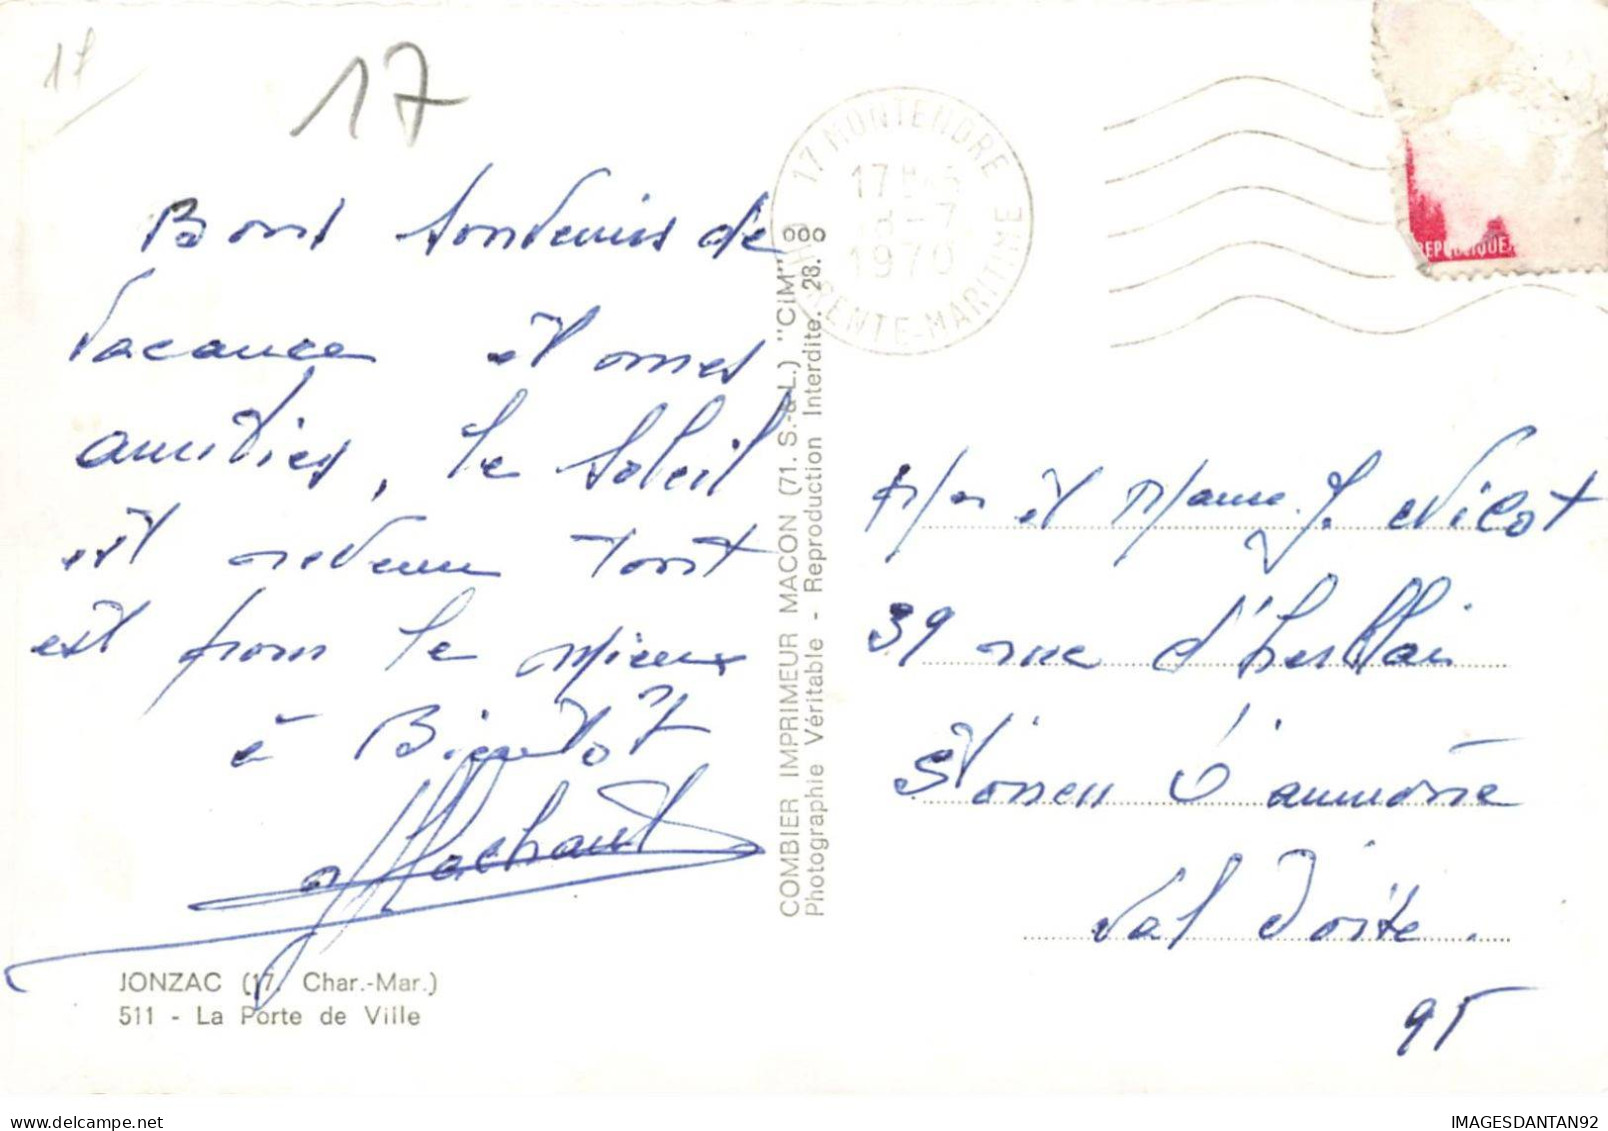 17
17
Bons souvenirs de
vacance et nos
amitiés, le soleil
est revenu tout
est pour le mieux
à Bientôt
Machaut
JONZAC (17. Char.-Mar.)
511 - La Porte de Ville
COMBIER IMPRIMEUR MACON (71. S.-&-L.) "CIM"
Photographie Véritable - Reproduction Interdite. 28.
17 MONTENDRE
17H
8-7
1970
CHARENTE-MARITIME
REPUBLIQUE
Mr et Mame J. Nicot
39 rue d'herblai
St ouen l'aumône
Val d'oise.
95
delcampe.net
IMAGESDANTAN92